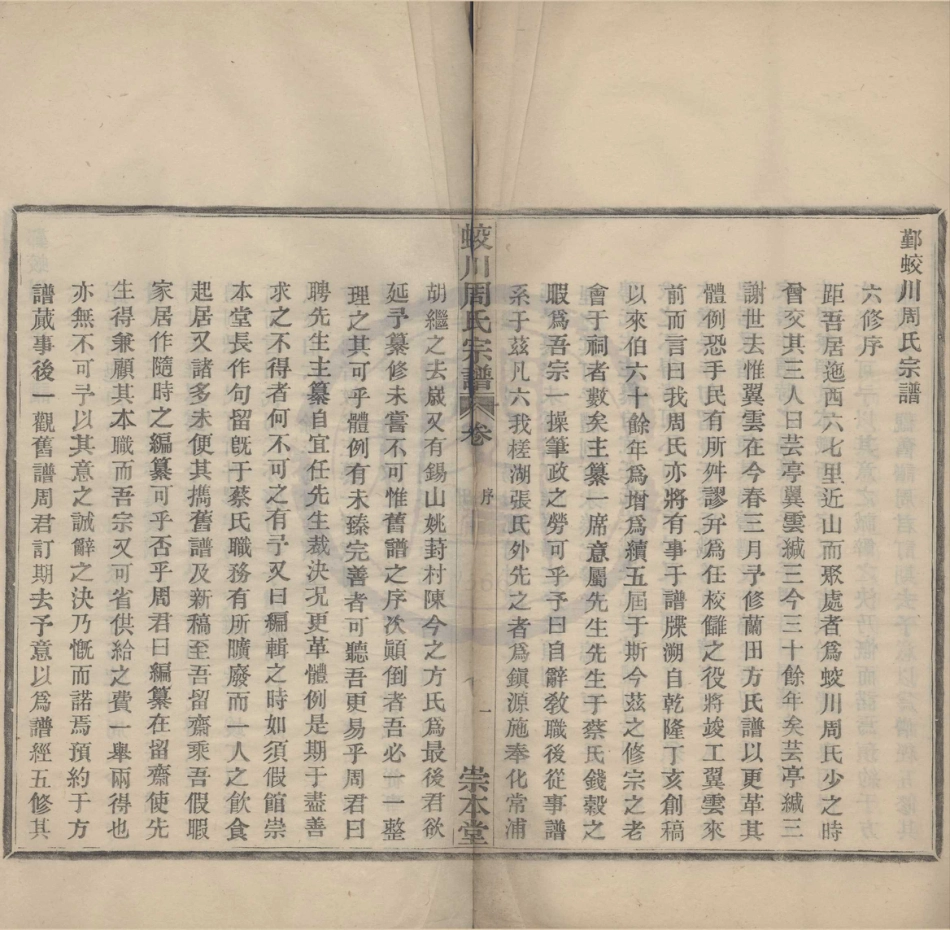 鄞蛟川周氏宗譜
六修序
距吾居迤西六七里近山而聚處者爲蛟川周氏少之時
曾交其三人曰芸亭翼雲緘三今三十餘年矣芸亭緘三
謝世去惟翼雲在今春三月予修蘭田方氏譜以更革其
體例恐手民有所舛謬弁爲任校讎之役將竣工翼雲來
前而言曰我周氏亦將有事于譜牒溯自乾隆丁亥創稿
以來伯六十餘年爲增爲續五屆于斯今茲之修宗之老
會于祠者數矣主纂一席意屬先生先生于蔡氏錢穀之
暇爲吾宗一操筆政之勞可乎予曰自辭敎職後從事譜
系于茲凡六我槎湖張氏外先之者爲鎭源施奉化常浦
蛟川周氏宗譜
卷
序
一
崇本堂
胡繼之去歲又有錫山姚葑村陳今之方氏爲最後君欲
延予纂修未嘗不可惟舊譜之序次顚倒者吾必一一整
理之其可乎體例有未臻完善者可聽吾更易乎周君曰
聘先生主纂自宜任先生裁決况更革體例是期于盡善
求之不得者何不可之有予又曰編輯之時如須假館崇
本堂長作句留旣于蔡氏職務有所曠廢而一人之飮食
起居又諸多未便其擕舊譜及新稿至吾留齋乘吾假暇
家居作隨時之編纂可乎否乎周君曰編纂在留齋使先
生得兼顧其本職而吾宗又可省供給之費一舉兩得也
亦無不可予以其意之誠辭之決乃慨而諾焉預約于方
譜蕆事後一觀舊譜周君訂期去予意以爲譜經五修其